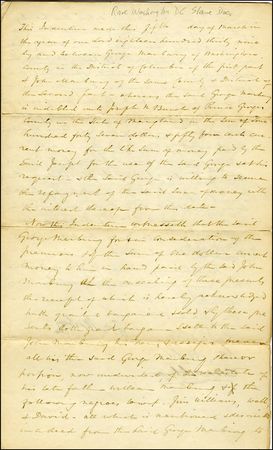 Rare Washington DC Slave Doc
This Indenture made this fifth day of March in
the year of one thousand eighteen hundred thirty nine
by and between George Marbury of Washington
County in the District of Columbia of the first part
& John Marbury of the same County & District of
the Second part. Whereas the said George Marbury
is indebted unto Joseph N. of Prince Georges
County in the State of Maryland in the Sum of four
hundred forty seven dollars & fifty four cents cur
rent money, for the like Sum of money paid by the
Said Joseph for the use of the said George at his
request & the Said George is willing to secure
the repayment of the Said Sum of money with
the interest thereof from this date
Now this Indenture witnesseth that the said
George Marbury for & in consideration of the
premises & of the Sum of one dollar current
money to him in hand paid by the said John
Marbury at the ensealing of these presents
the receipt of which is hereby acknowledged
hath granted bargained & sold & by these pre
sents doth grant bargain & sell to the said
John Marbury his
all his the said George Marbury share &
now undivided, of
his late father William Marbury & of the
following negroes to wit: Jim Williams,
& David all which is mentioned
in a deed from the said George Marbury to